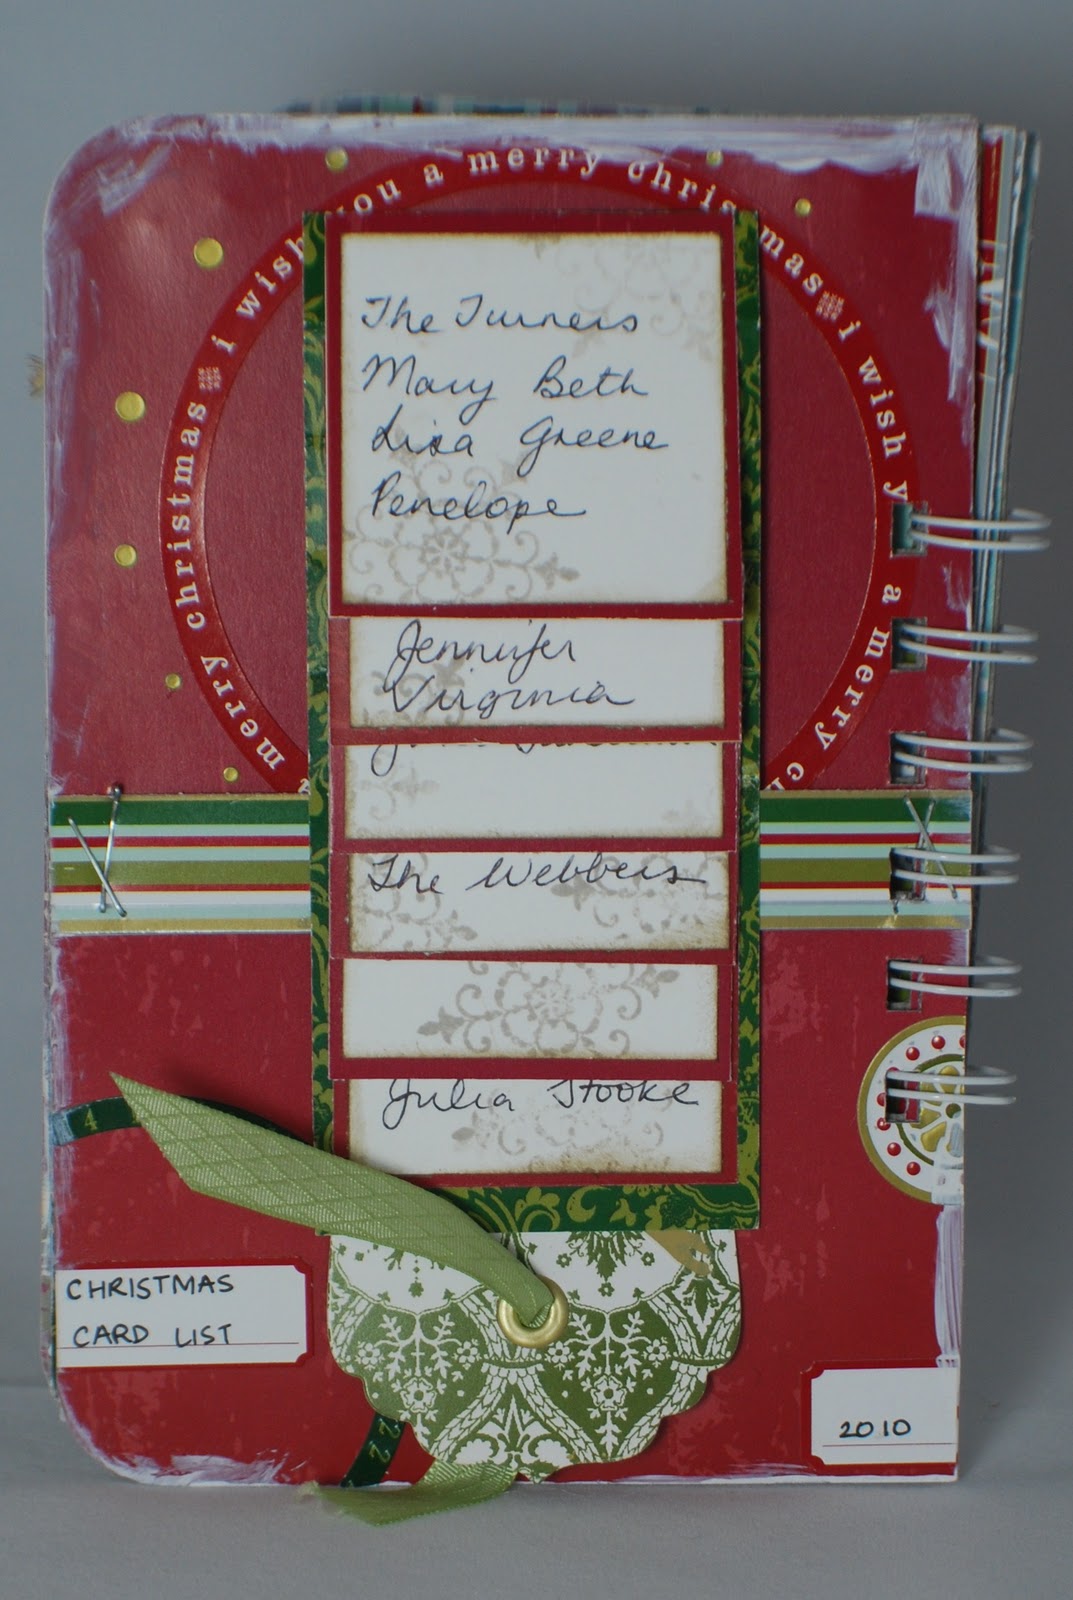 i wish you a merry christmas i wish y a merry ch
merry christmas
The Turners
Mary Beth
Lisa Greene
Penelope
Jennifer
Virginia
The Webbers
Julia Stooke
4
22
CHRISTMAS
CARD LIST
2010